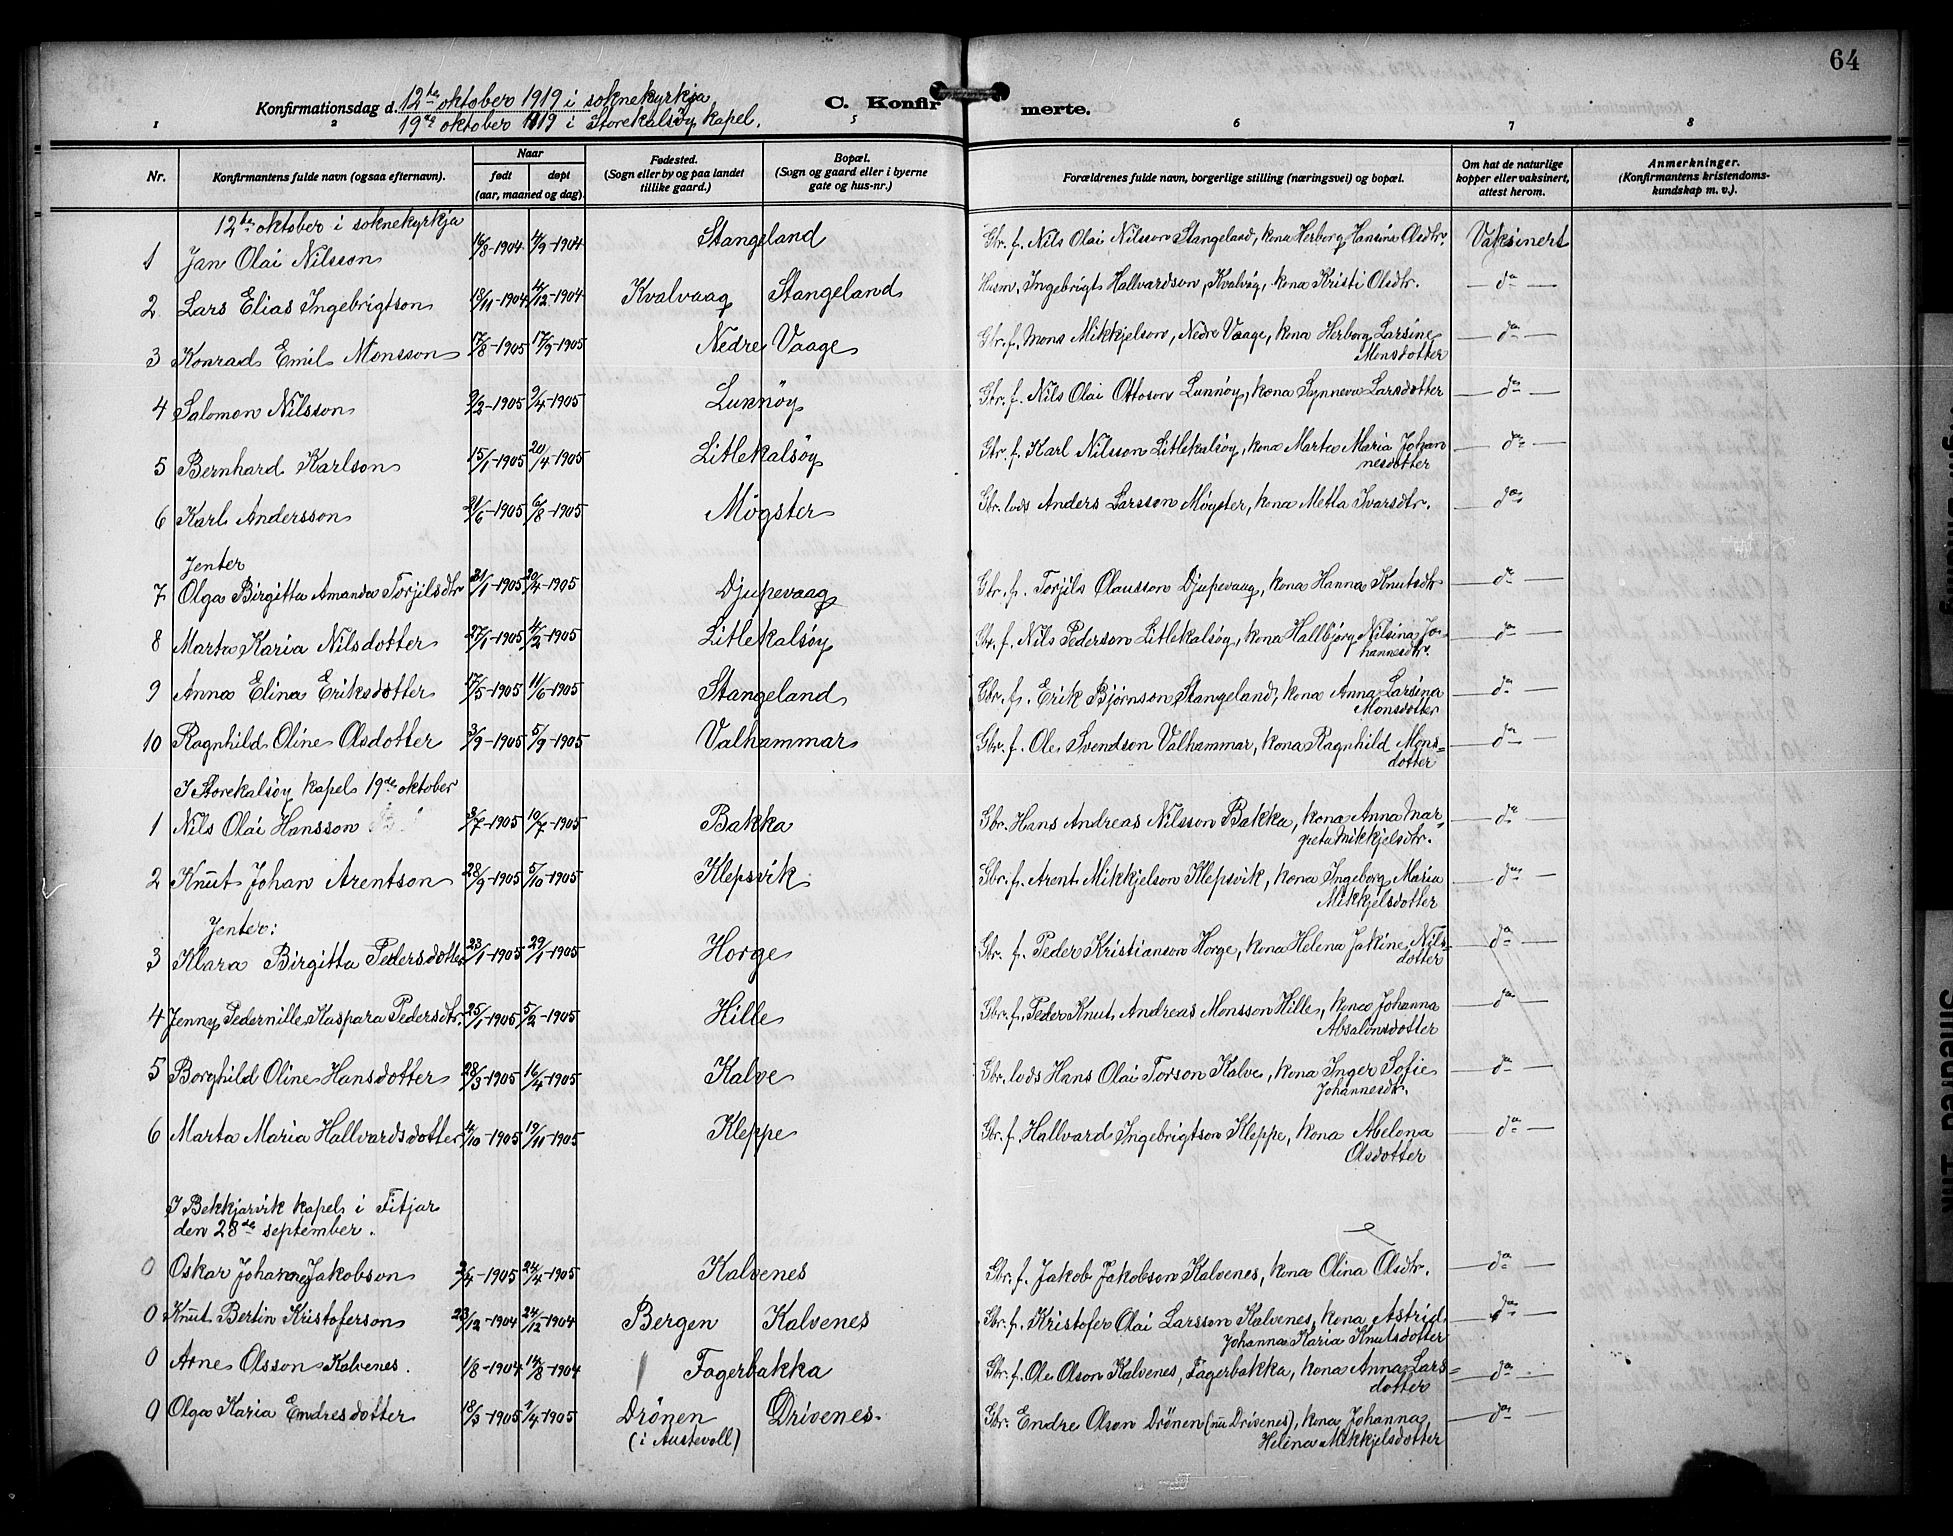 64
Konfirmationsdag d. 12te oktober 1919 i soknekyrkja
19de oktober 1919 i Storekalsøy kapel.
C. Konfirmerte.
1 2 5 6 7 8
Nr. Konfirmantens fulde navn (ogsaa efternavn). Naar født døpt (aar, maaned og dag). Fødested. (Sogn eller by og paa landet tillike gaard.) Bopæl. (Sogn og gaard eller i byerne gate og hus-nr.) Forældrenes fulde navn, borgerlige stilling (næringsvei) og bopæl. Om hat de naturlige kopper eller vaksinert, attest herom. Anmerkninger. (Konfirmantens kristendomskundskap m. v.).
12te oktober i soknekyrkja
1 Jan Olai Nilsson 16/8-1904 4/9-1904 Stangeland Gbr. f. Nils Olai Nilsson Stangeland, kona Herborg Hansina Olsdtr. Vaksinert
2 Lars Elias Ingebrigtson 18/11-1904 4/12-1904 Kvalvaag Stangeland Husm. Ingebrigt Hallvardson, Kvalvåg, kona Kristi Olsdtr. — do —
3 Konrad Emil Monsson 17/8-1905 17/9-1905 Nedre Vaage Gbr. f. Mons Mikkjelson, Nedre Vaage, kona Herborg Larsine Monsdotter — do —
4 Salomon Nilsson 9/2-1905 9/4-1905 Lunnøy Gbr. f. Nils Olai Ottoson Lunnøy, kona Synneva Larsdotter — do —
5 Bernhard Karlson 15/1-1905 20/4-1905 Litlekalsøy Gbr. f. Karl Nilsson Litlekalsøy, kona Marta Maria Johannesdotter — do —
6 Karl Andersson 21/6-1905 6/8-1905 Møgster Gbr. lods Anders Larsson Møgster, kona Metla Ivarsdtr. — do
Jenter
7 Olga Birgitta Amanda Torjilsdtr 21/1-1905 20/4-1905 Djupevaag Gbr. f. Torjils Olausson Djupevaag, kona Hanna Knutsdtr — do —
8 Marta Karia Nilsdotter 27/1-1905 4/2-1905 Litlekalsøy Gbr. f. Nils Pederson Litlekalsøy, kona Hallbjørg Nilsina Johannesdtr. — do —
9 Anna Elina Eriksdotter 17/5-1905 11/6-1905 Stangeland Gbr. f. Erik Bjørnson Stangeland, kona Anna Larsina Monsdotter — do —
10 Ragnhild Oline Olsdotter 3/9-1905 5/9-1905 Valhammar Gbr. f. Ole Svendson Valhammar, kona Ragnhild Monsdotter — do —
I Storekalsøy kapel 19de oktober
1 Nils Olai Hansson 3/7-1905 10/7-1905 Bakka Gbr. Hans Andreas Nilsson Bakka, kona Anna Margreta Mikkjelsdtr. — do —
2 Knut Johan Arentson 28/9-1905 5/10-1905 Klepsvik Gbr. f. Arent Mikkjelson Klepsvik, kona Ingeborg Maria Mikkjelsdotter — do —
Jenter:
3 Klara Birgitta Pedersdotter 23/1-1905 29/1-1905 Horge Gbr. f. Peder Kristianson Horge, kona Helena Jakine Nilsdotter — do —
4 Jenny Pedernille Kaspara Pedersdtr. 25/1-1905 5/2-1905 Hille Gbr. f. Peder Knut Andreas Monsson Hille, kona Johanna Absalonsdotter — do —
5 Borghild Oline Hansdotter 28/3-1905 16/4-1905 Kalve Gbr. lods Hans Olai Torson Kalve, kona Inger Sofie Johannesdtr. — do —
6 Marta Maria Hallvardsdotter 14/10-1905 19/11-1905 Kleppe Gbr. f. Hallvard Ingebrigtson Kleppe, kona Abelona Olsdotter — do —
I Bekkjarvik kapel i Fitjar
den 28de september.
0 Oskar Johannes Jakobson 3/4-1905 24/4-1905 Kalvenes Gbr. f. Jakob Jakobson Kalvenes, kona Olina Olsdtr. — do —
0 Knut Bertin Kristoferson 23/12-1904 24/12-1904 Bergen Kalvenes Gbr. f. Kristofer Olai Larsson Kalvenes, kona Astrid Johanna Karia Knutsdotter — do —
0 Arne Olsson Kalvenes. 1/8-1904 14/8-1904 Fagerbakka Gbr. f. Ole Olson Kalvenes, Fagerbakka, kona Anna Larsdotter — do —
0 Olga Karia Endresdotter 18/3-1905 7/4-1905 Drönen (i Austevoll) Drivenes. Gbr. Endre Olson Drönen (nu Drivenes), kona Johanna Helina Mikkjelsdotter — do —